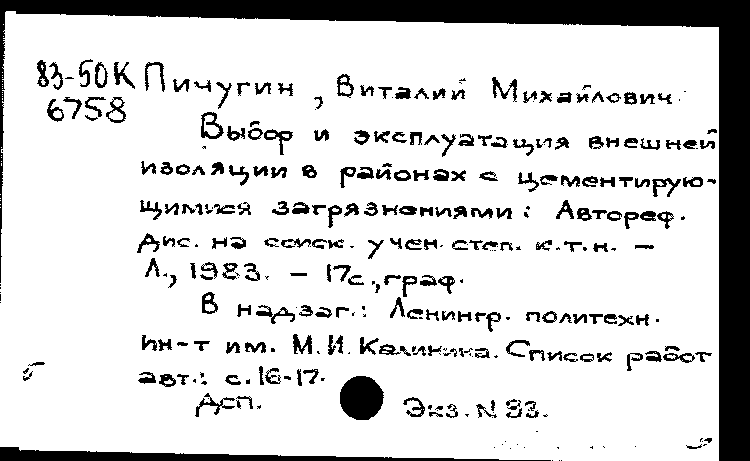 83-50К Пичугин, Виталий Михайлович.
6758
Выбор и эксплуатация внешней
изоляции в районах с цементирую-
щимися загрязнениями: Автореф.
дис. на соиск. учен. степ. к.т.н. –
Л., 1983. – 17с., граф.
В надзаг.: Ленингр. политехн.
ин-т им. М.И. Калинина. Список работ
авт.: с. 16-17.
Дсп. Экз. N 93.